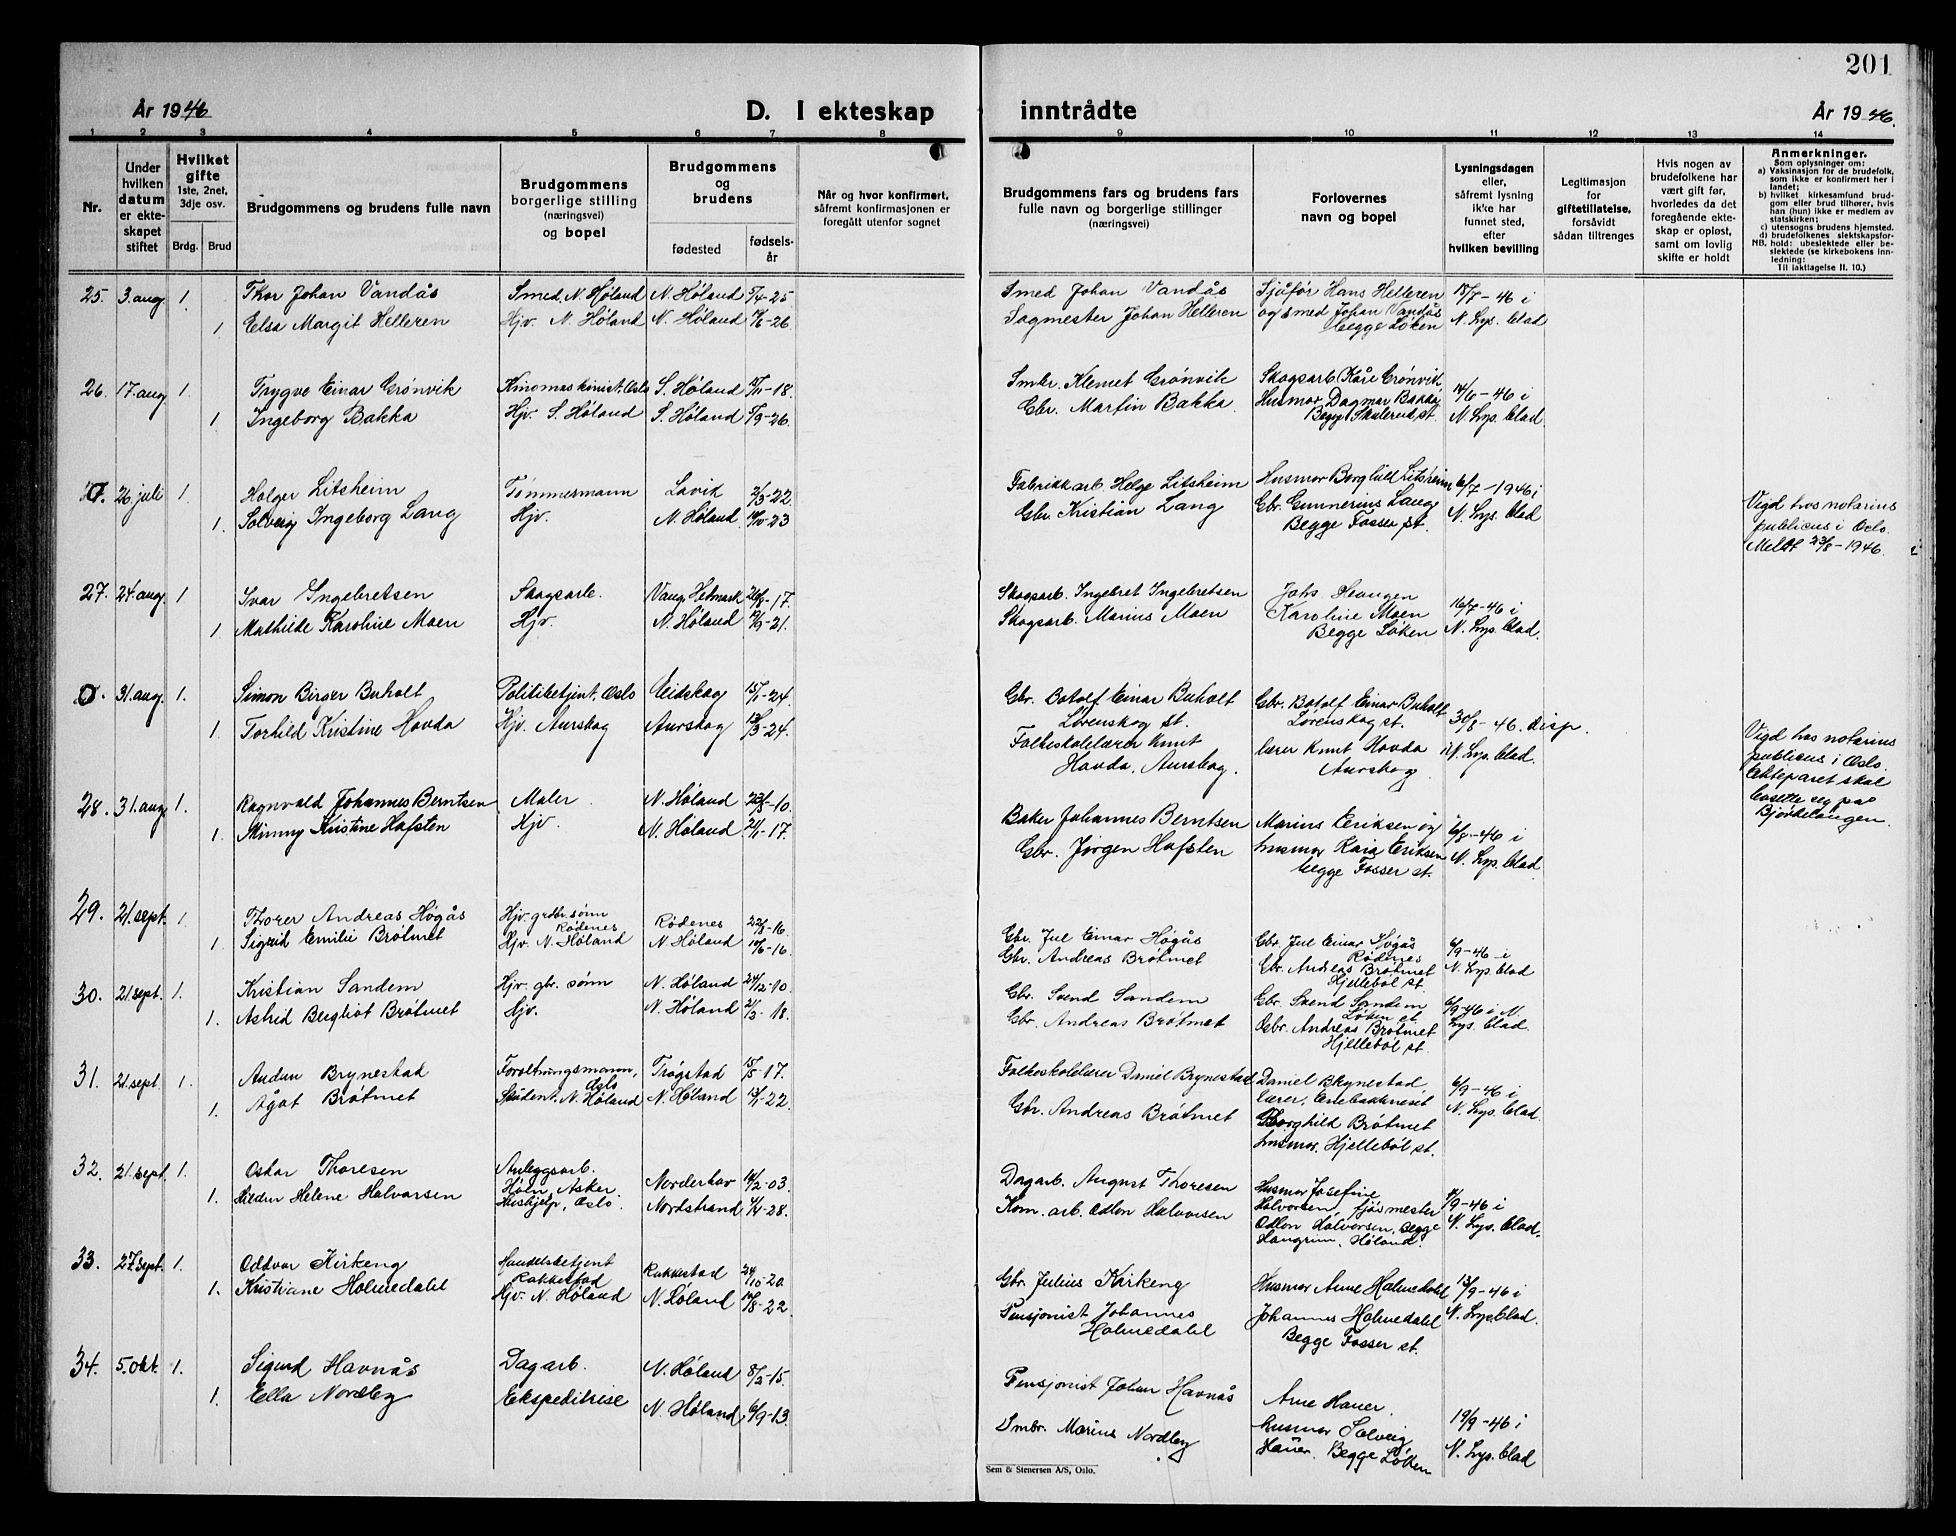 201
År 1946
D. I ekteskap inntrådte
År 1946.
1 2 3 4 5 6 7 8 9 10 11 12 13 14
Nr.
Under hvilken datum er ekteskapet stiftet
Hvilket gifte 1ste, 2net, 3dje osv.
Brdg. Brud
Brudgommens og brudens fulle navn
Brudgommens borgerlige stilling (næringsvei) og bopel
Brudgommens og brudens
fødested
fødselsår
Når og hvor konfirmert, såfremt konfirmasjonen er foregått utenfor sognet
Brudgommens fars og brudens fars fulle navn og borgerlige stillinger (næringsvei)
Forlovernes navn og bopel
Lysningsdagen eller, såfremt lysning ikke har funnet sted, efter hvilken bevilling
Legitimasjon for giftetillatelse, forsåvidt sådan tiltrenges
Hvis nogen av brudefolkene har vært gift før, hvorledes da det foregående ekteskap er opløst, samt om lovlig skifte er holdt
Anmerkninger.
Som oplysninger om:
a) Vaksinasjon for de brudefolk, som ikke er konfirmert her i landet;
b) hvilket kirkesamfund brudgom eller brud tilhører, hvis han (hun) ikke er medlem av statskirken;
c) utensogns brudens hjemsted.
d) brudefolkenes slektskapsforhold: ubeslektede eller beslektede (se kirkebokens innledning:
NB. Til iakttagelse II. 10.)
25. 3. aug. 1. Thor Johan Vandås Smed, N. Høland N. Høland 5/4-25 Smed Johan Vandås Sjåfør Hans Helleren 18/7-46 i
1 Elsa Margit Helleren Hjv. N. Høland N. Høland -26 Sagmester Johan Helleren og smed Johan Vandås N. Lys. blad
begge Løken
26. 17. aug. 1. Trygve Einar Grønvik Kinomaskinist, Oslo S. Høland -18 Smbr. Klemet Grønvik Skogsarb. Kåre Grønvik 14/6-46 i
1 Ingeborg Bakka Hjv. S. Høland S. Høland -26. Gbr. Martin Bakka. Husmor Dagmar Bakka N. Lys. blad.
Begge Skulerud st.
0. 26. juli 1. Holger Litsheim Tømmermann Lavik 2/3-22 Fabrikkarb. Helge Litsheim Husmor Borghild Litsheim 6/7-1946 i
1. Solveig Ingeborg Lang Hjv. N. Høland -23 Gbr. Kristian Lang Gbr. Gunnerius Lang N. Lys. blad
Begge Fosser st.
Vigd hos notarius
publicus i Oslo.
Meldt 23/8-1946.
27. 24. aug. 1 Ivar Ingebretsen Skogsarb. Vang Hedmark -17. Skogsarb. Ingebret Ingebretsen Johs Haugen 16/7-46 i
1 Mathilde Karoline Moen Hjv. N. Høland -21. Skogsarb. Marius Moen Karoline Moen N. Lys. blad.
Begge Løken
0. 31. aug. 1. Simon Birger Buholt Politibetjent, Oslo Eidskog 15/1-24. Gbr. Botolf Einar Buholt Gbr. Botolf Einar Buholt 30/8-46. disp.
Lørenskog st. Lørenskog st.
1. Torhild Kristine Hovda Hjv. Aurskog Aurskog 12/3-24. Folkeskolelærer Knut lærer Knut Hovda i N. Lys. blad.
Hovda, Aurskog. Aurskog
Vigd hos notarius
publicus i Oslo.
Ekteparet skal
bosette seg på
Bjørkelangen.
28. 31. aug. 1. Ragnvald Johannes Berntsen Maler. N. Høland -10. Baker Johannes Berntsen Marius Eriksen og 6/8-46 i
1. Minny Kristine Hafsten Hjv. N. Høland 21/1-17. Gbr. Jørgen Hafsten husmor Kaia Eriksen N. Lys. blad.
begge Fosser st.
29. 21. sept. 1. Thorer Andreas Høgås Hjv. grdbr. sønn Rødenes Rødenes 22/8-16. Gbr. Jul Einar Høgås Gbr. Jul Einar Høgås Rødenes 6/9-46 i
1. Sigrid Emilie Brøtmet Hjv. N. Høland N. Høland -16 Gbr. Andreas Brøtmet Gbr. Andreas Brøtmet Hjellebøl st. N. Lys blad
30. 21 sept. 1. Kristian Sandem Hjv. gbr. sønn N. Høland 24/12-10. Gbr. Svend Sandem Gbr. Svend Sandem Løken st. 6/9-46 i N.
1. Astrid Bergliot Brøtmet Hjv. N. Høland 21/3-18. Gbr. Andreas Brøtmet Gbr. Andreas Brøtmet Hjellebøl st. Lys. blad.
31. 21. sept. 1. Audun Brynestad Forvaltningsmann, Oslo Trøgstad 15/5-17. Folkeskolelærer Daniel Brynestad Daniel Brynestad, 6/9-46 i
lærer, Enebakkneset
1. Ågot Brøtmet Student, N. Høland N. Høland -22. Gbr. Andreas Brøtmet Borghild Brøtmet N. Lys. blad.
husmor, Hjellebøl st.
32. 21. sept. 1. Oskar Thoresen Anleggsarb. Asker. Norderhov 14/2-03. Dagarb. August Thoresen Husmor Josefine -46 i
1. Helene Halvorsen Hushjelp, Oslo. Nordstrand 4/4-28. Kom. arb. Odlon Halvorsen Halvorsen, fjøsmester N. Lys. blad.
Odlon Halvorsen, Begge
Hangrim, Høland.
33. 27. sept. 1. Oddvar Kirkeng Handelsbetjent Rakkestad Rakkestad 24/10-20. Gbr. Julius Kirkeng Husmor Anne Holmedahl 13/9-46 i
1. Kristiane Holmedahl Hjv. N. Høland N. Høland -22. Pensjonist Johannes Holmedahl Johannes Holmedahl N. Lys. blad.
Begge Fosser st.
34. 5. okt. 1. Sigurd Havnås Dagarb. N. Høland 8/2-15. Pensjonist Johan Havnås Arne Hauer, 19/9-46 i
1. Ella Nordby Ekspeditrise N. Høland 6/9-13. Smbr. Marius Nordby husmor Solveig N. Lys. blad
Hauer. Begge Løken
Sem & Stenersen A/S, Oslo.